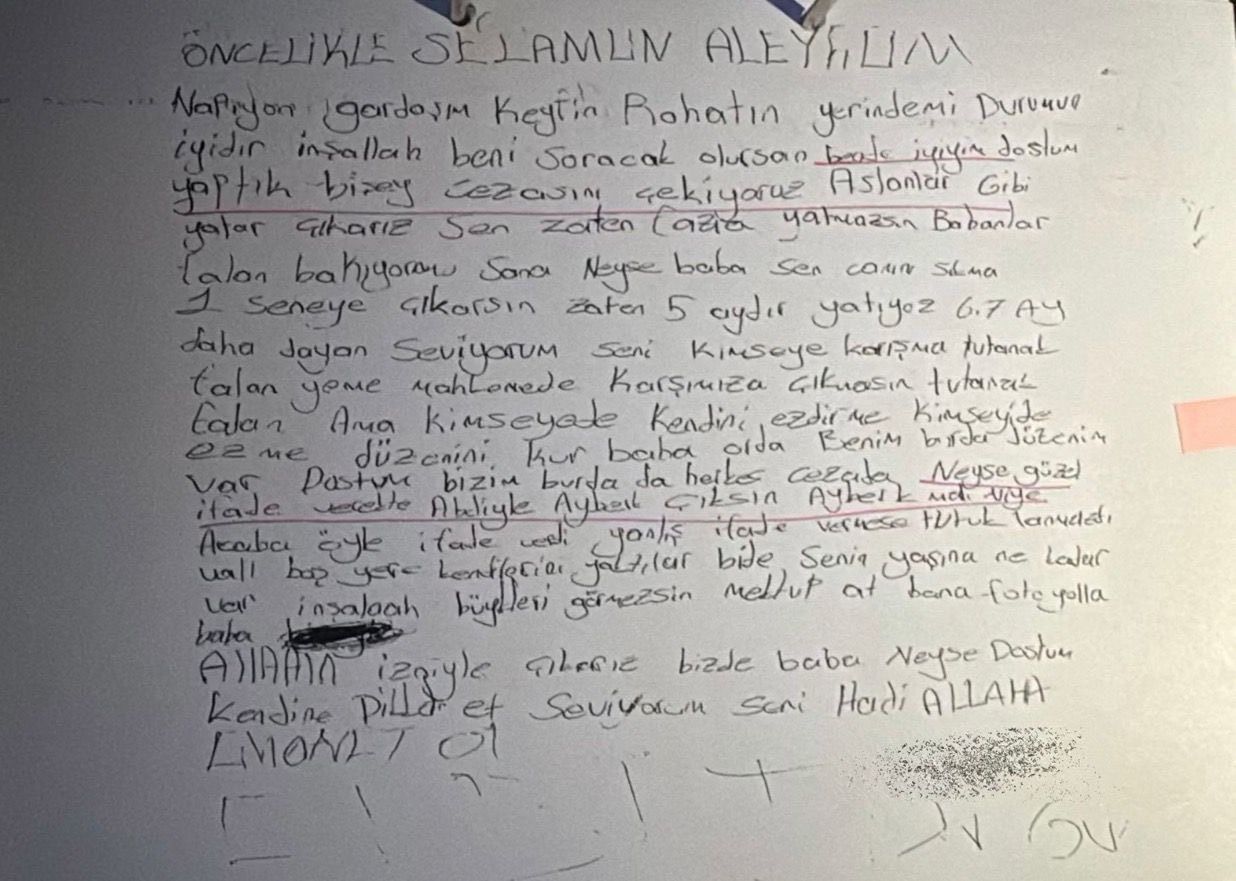 ÖNCELİKLE SELAMUN ALEYKUM
Napıyon gardaşım Keyfin Rahatın yerindemi Durumun
iyidir inşallah beni soracak olursan bende iyiyim dostum
yaptık bizey cezasını çekiyoruz Aslanlar Gibi
yatar çıkarız sen zaten fazla yatmazsın Babanlar
falan bakıyorm sana Neyse baba sen canın sıkma
1 seneye çıkarsın zaten 5 aydır yatıyoz 6.7 Ay
daha dayan Seviyorum seni Kimseye karışma tutanak
falan yeme mahkemede Karşımıza çıkmasın tutanak
falan Ama kimseyede Kendini ezdirme Kimseyide
ezme düzenini kur baba orda Benim burda düzenim
var Dostum bizim burda da herkes cezada Neyse güzel
ifade Abdiyle Ayberk Çıksın Ayberk diye
Acaba öyle ifade verdi yanlış ifade vermese tutuklanmazdı
vall boş yere yaktılar bide Senin yaşına ne kadar
var insalaah büyükleri görmezsin mektup at bana foto yolla
baba
ALLAHIN izniyle çıkarız bizde baba Neyse Dostum
Kendine Dikkat et Seviyorum seni Hadi ALLAHA
EMANET Ol